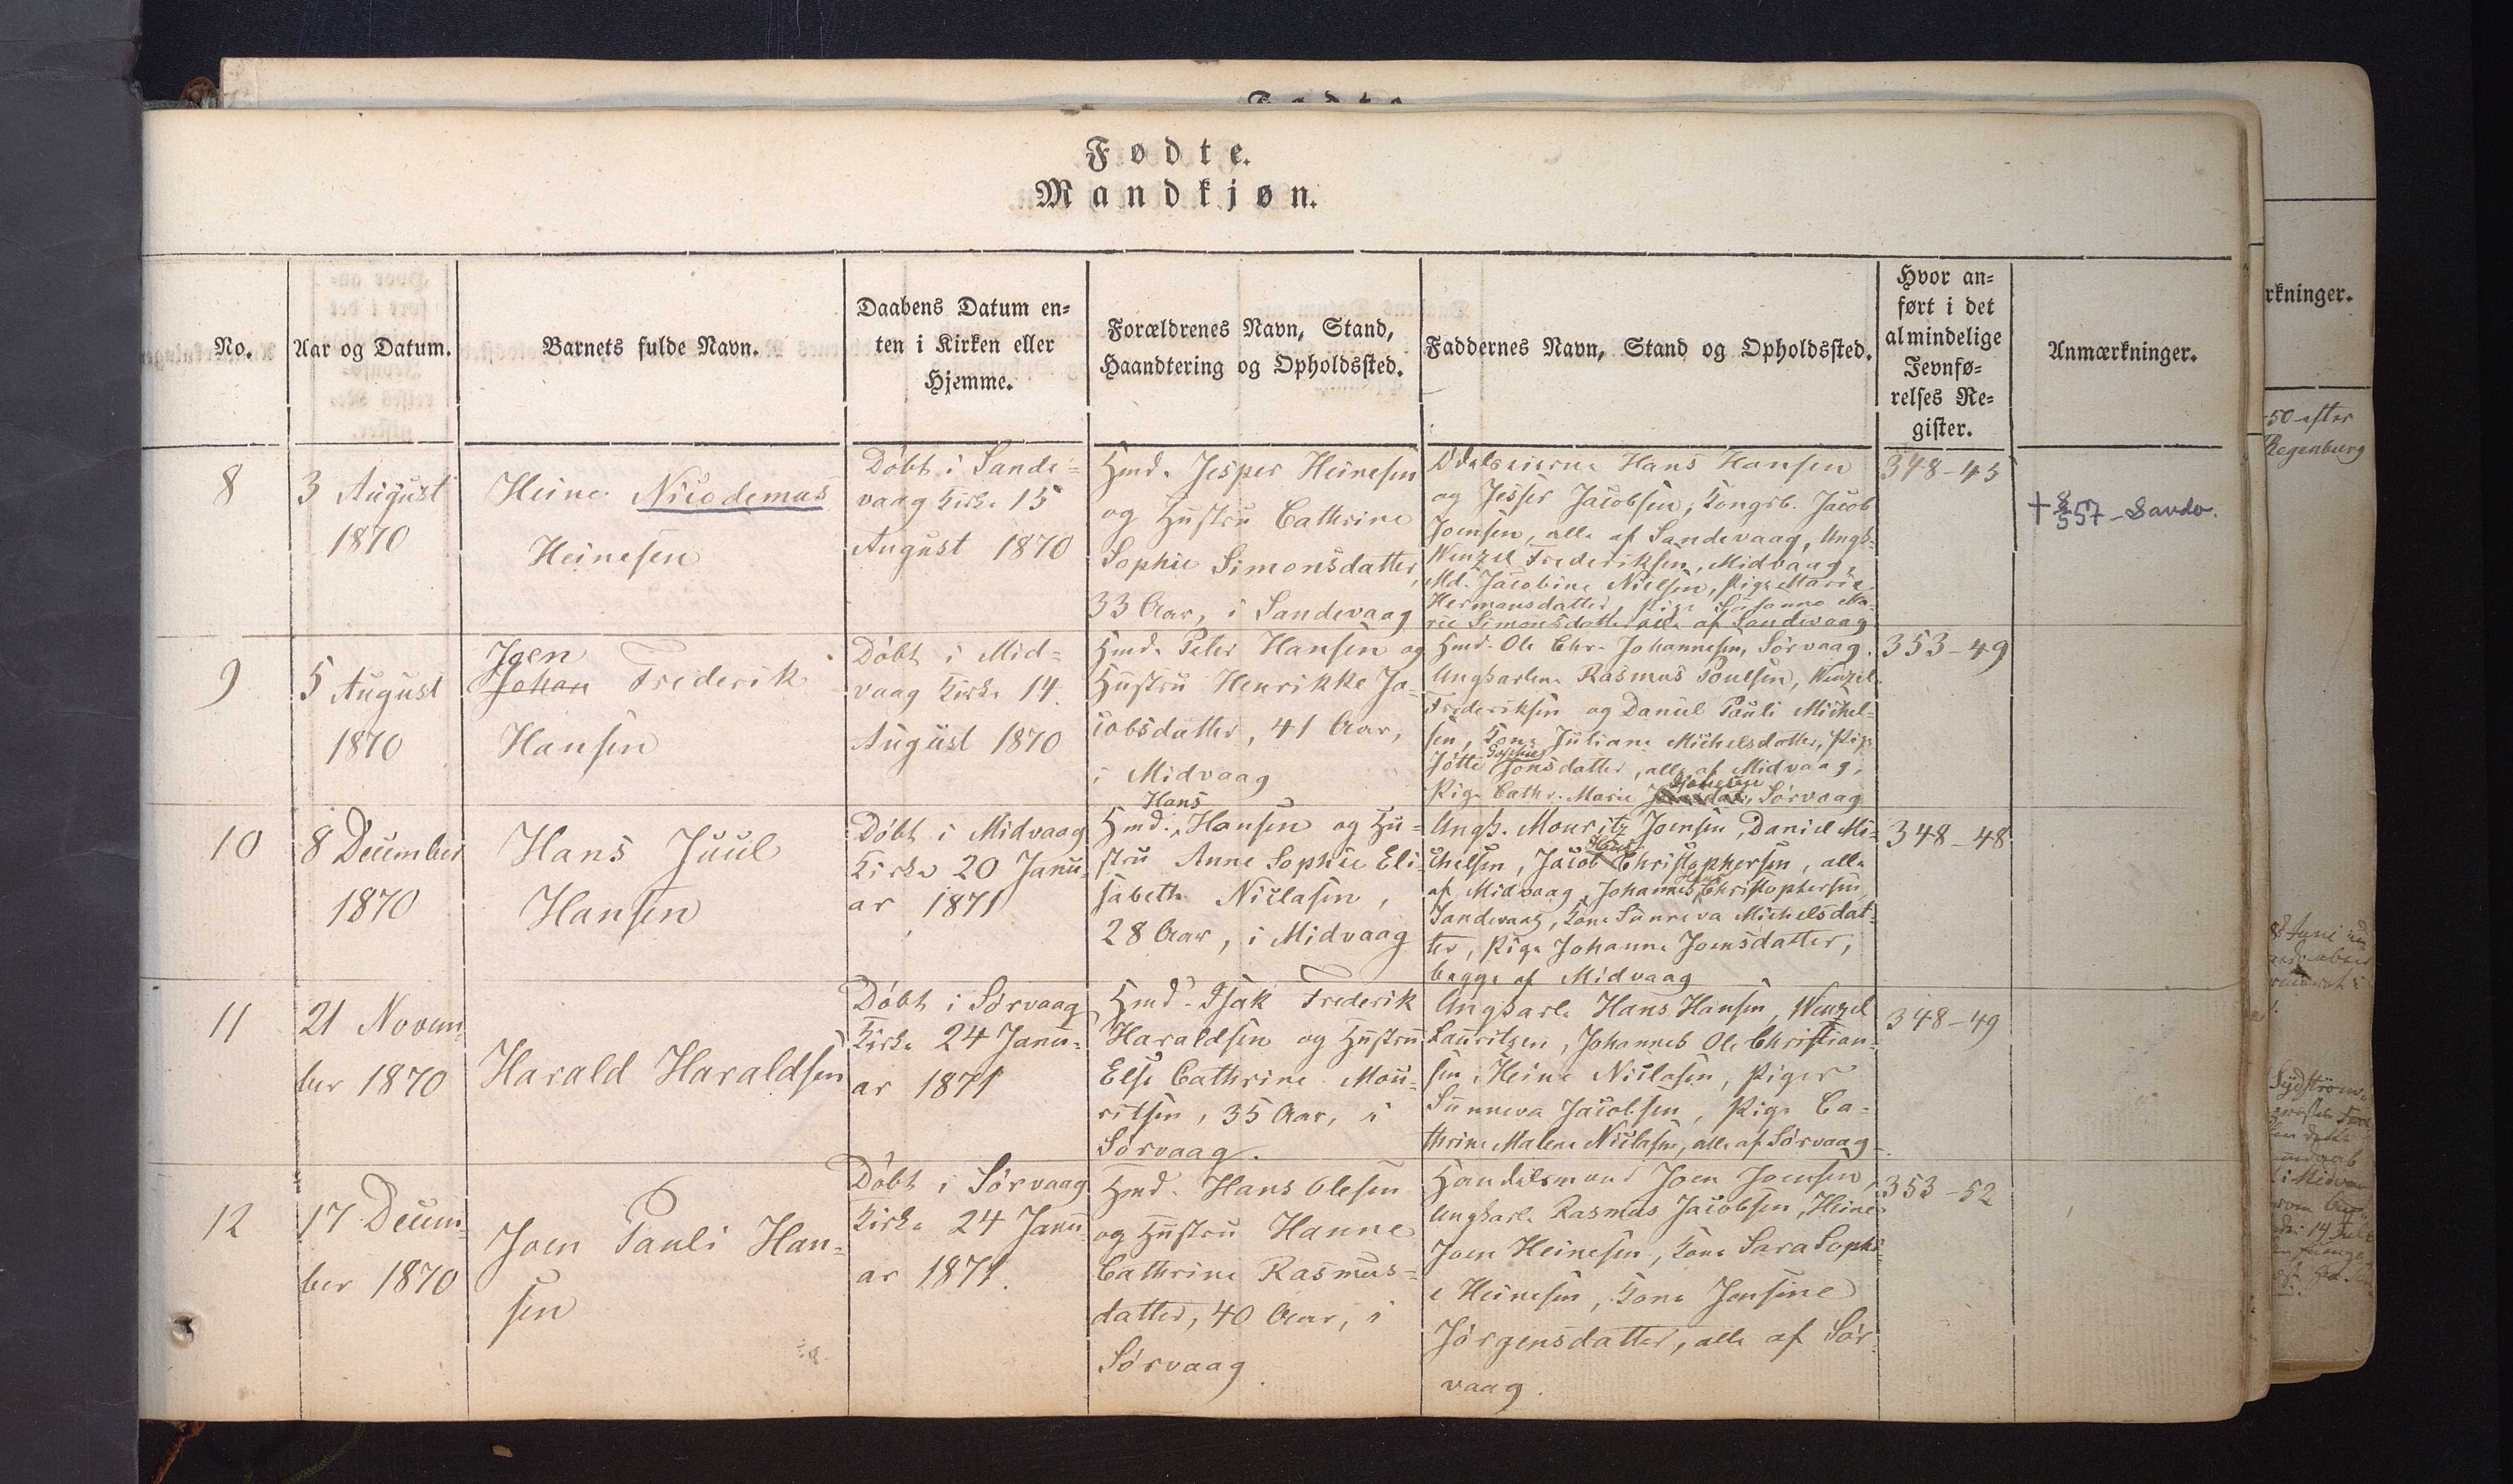 Fødte.
Mandkjøn.
No.
Aar og Datum.
Barnets fulde Navn.
Daabens Datum en-
ten i Kirken eller
Hjemme.
Forældrenes Navn, Stand,
Haandtering og Opholdssted.
Faddernes Navn, Stand og Opholdssted.
Hvor an-
ført i det
almindelige
Jevnfø-
relses Re-
gister.
Anmærkninger.
8
3 August
1870
Heine Nicodemus
Heinesen
Døbt i Sande-
vaag Kirke 15
August 1870
Hmd. Jesper Heinesen
og Hustru Cathrine
Sophie Simonsdatter,
33 Aar, i Sandevaag
Odelseierne Hans Hansen
og Jesper Jacobsen, Kongsb. Jacob
Joensen, alle af Sandevaag, Ungk.
Wenzel Frederiksen, Midvaag,
Md. Jacobine Nielsen, Pige Marie
Hermansdatter, Pige Susanne Ma-
rie Simonsdatter alle af Sandevaag
348-45
+ 8/5 57 - Sandv.
9
5 August
1870
Joen
Johan Frederik
Hansen
Døbt i Mid-
vaag Kirke 14.
August 1870
Hmd. Peter Hansen og
Hustru Henrikke Ja-
cobsdatter, 41 Aar,
i Midvaag
Hmd. Ole Chr. Johannesen, Sørvaag.
Ungkarlene Rasmus Poulsen, Wenzel
Frederiksen og Daniel Pauli Michel-
sen, Kone Juliane Michelsdatter, Pige
Sophie
Jonsdatter, alle af Midvaag,
Pige Cathr. Marie Sørvaag
353-49
10
8 December
1870
Hans Juul
Hansen
Døbt i Midvaag
Kirke 20 Janu-
ar 1871
Hans
Hmd. Hansen og Hu-
stru Anne Sophie Eli-
sabeth Niclasen,
28 Aar, i Midvaag
Ungk. Mouritz Joensen, Daniel Mi-
Hans
chelsen, Jacob Christophersen, alle
Hans
af Midvaag, Johannes Christophersen
Sandevaag, Kone Sunneva Michelsdat-
ter, Pige Johanne Joensdatter,
begge af Midvaag
348-48
11
21 Novem-
ber 1870
Harald Haraldsen
Døbt i Sørvaag
Kirke 24 Janu-
ar 1871
Hmd. Isak Frederik
Haraldsen og Hustru
Else Cathrine Mou-
ritsen, 35 Aar, i
Sørvaag.
Ungkarle Hans Hansen, Wenzel
Lauritzen, Johannes Ole Christian-
sen, Heine Niclasen, Piger
Sunneva Jacobsen, Pige Ca-
thrine Malene Niclasen, alle af Sørvaag
348-49
12
17 Decem-
ber 1870
Joen Pauli Han-
sen
Døbt i Sørvaag
Kirke 24 Janu-
ar 1871.
Hmd. Hans Olesen
og Hustru Hanne
Cathrine Rasmus-
datter, 40 Aar, i
Sørvaag.
Handelsmand Joen Joensen
Ungkarle Rasmus Jacobsen, Heine
Joen Heinesen, Kone Sara Sophi-
e Heinesen, Kone Jensine
Jørgensdatter, alle af Sør-
vaag.
353-52
rkninger.
50 efter
Regenburg